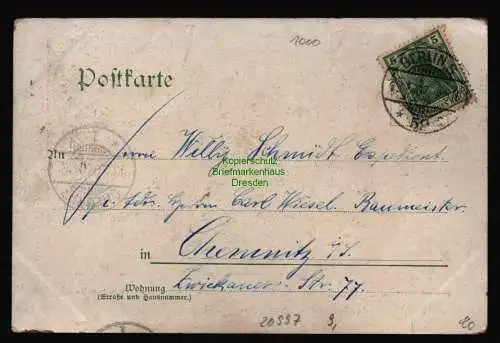 1000
Postkarte
5 5
BERLIN
An Herrn Willy Schmidt, Expedient
Kopierschutz
Briefmarkenhaus
Dresden
p. Adr. Herrn Carl Wiesel. Baumeister
in Chemnitz i/S.
Wohnung Zwickauer-Str. 77.
(Straße und Hausnummer.)
20997 9,
20